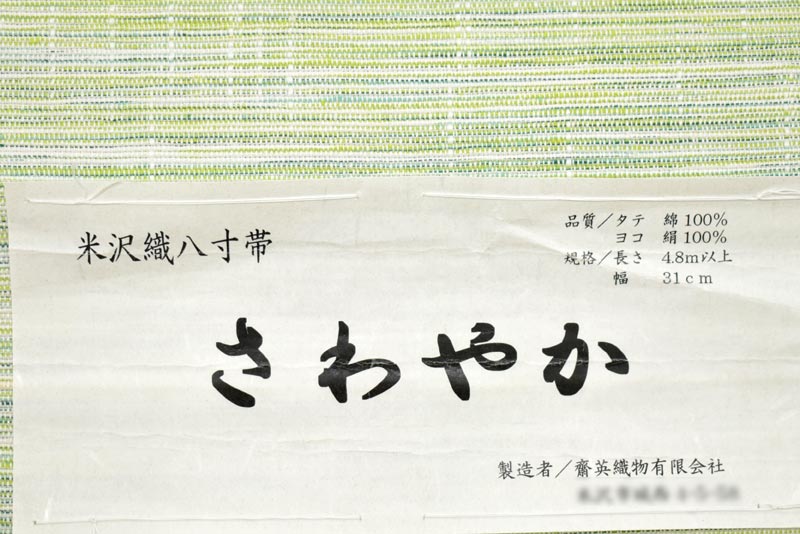 米沢織八寸帯
品質／タテ 綿100%
ヨコ 絹100%
規格／長さ 4.8m以上
幅 31cm
さわやか
製造者／齋英織物有限会社